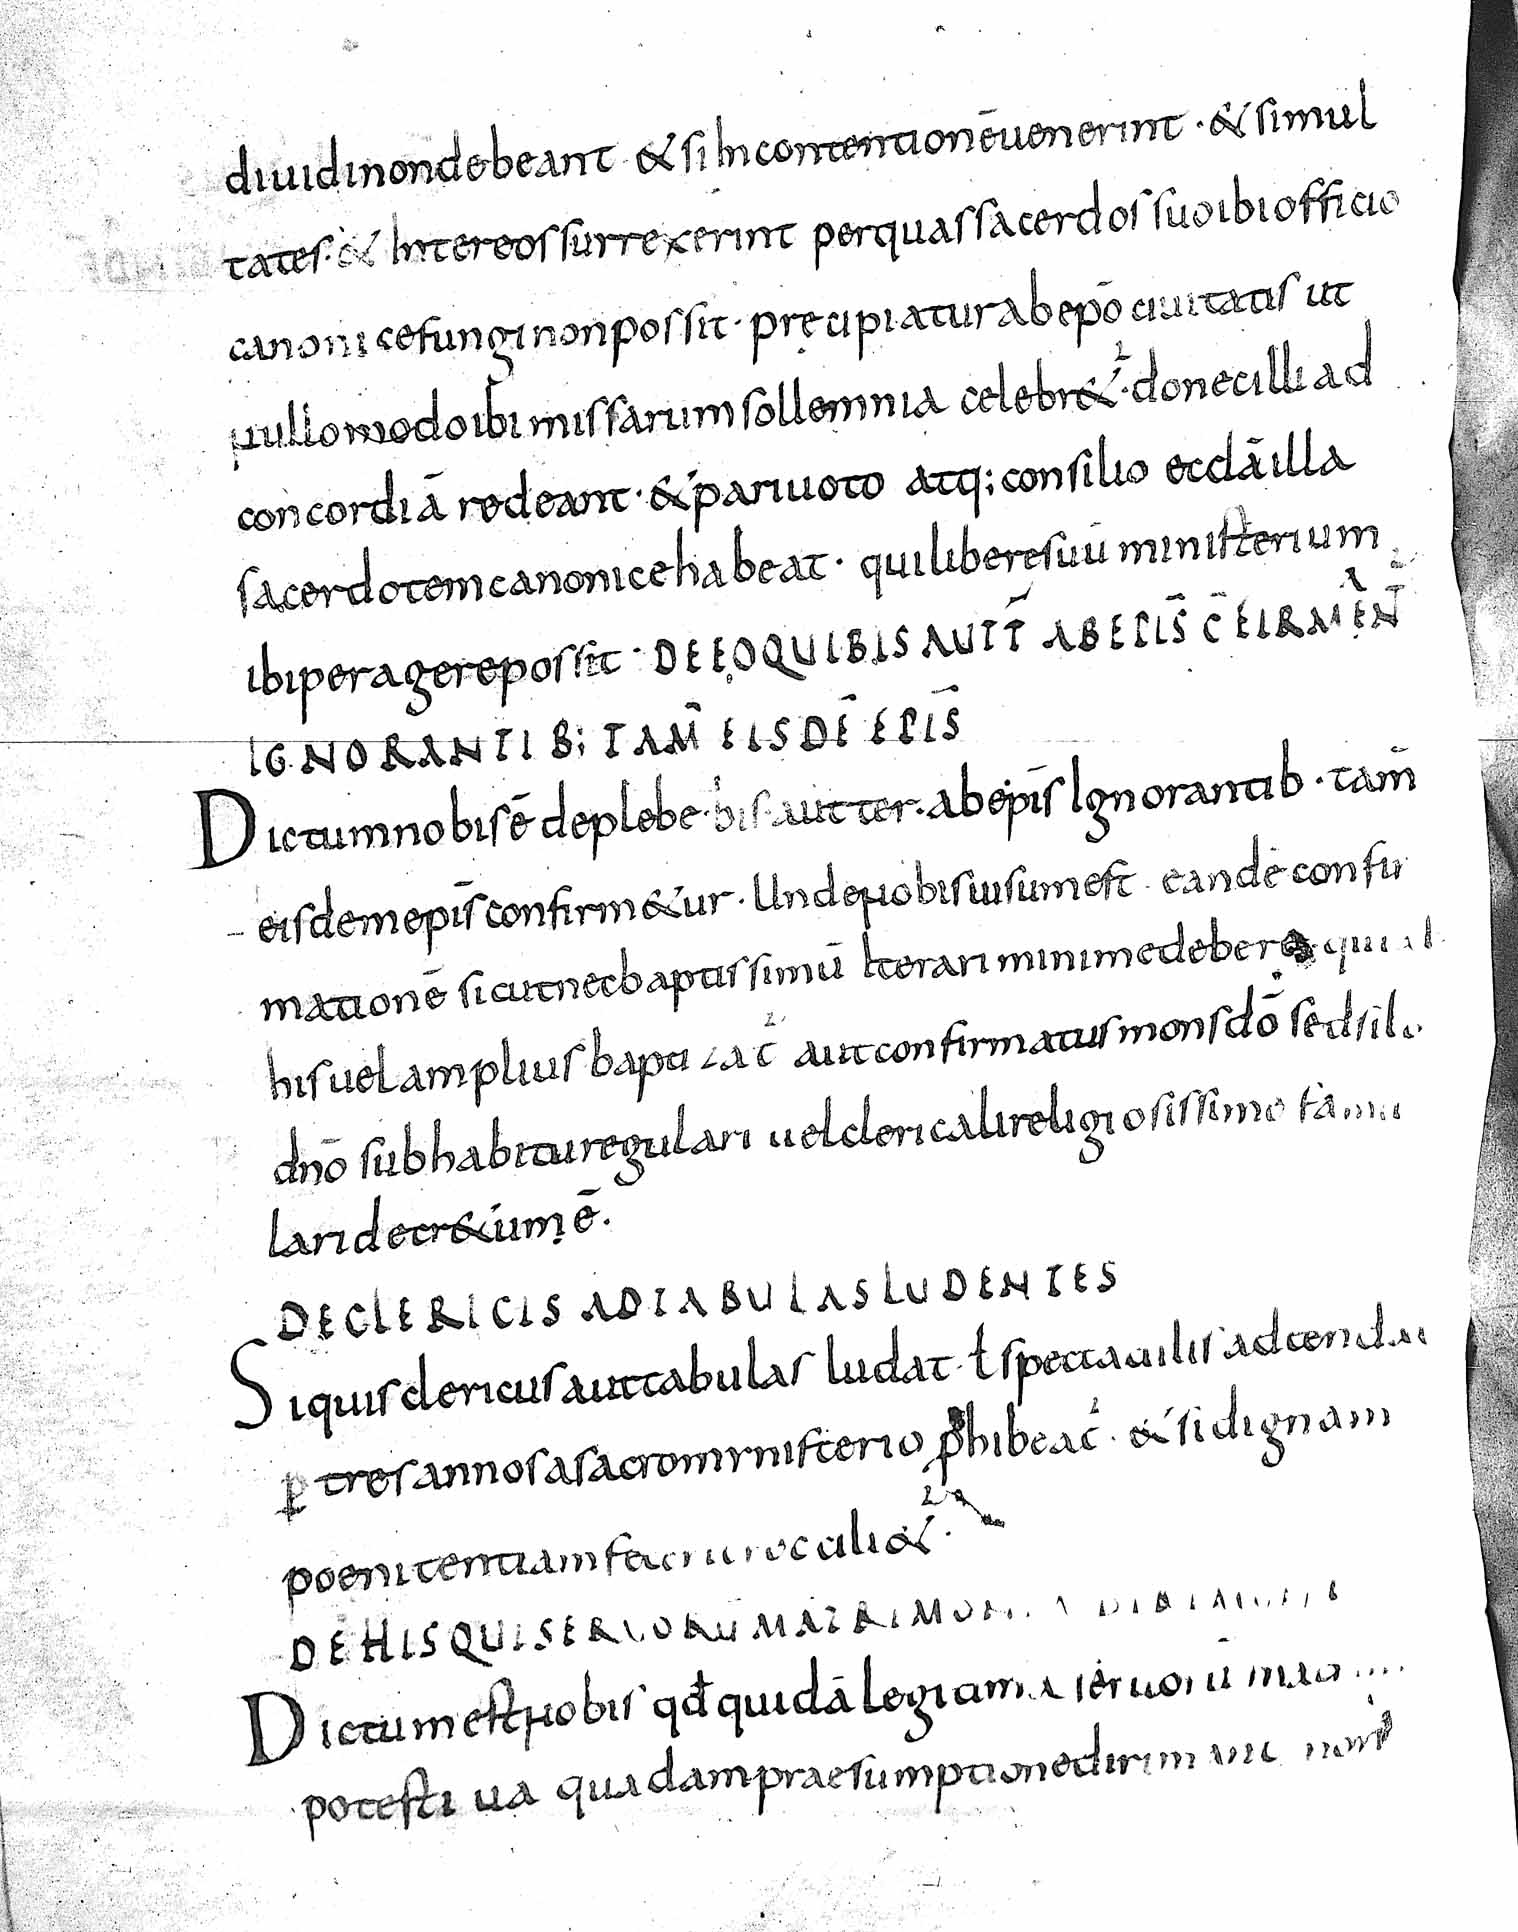 diuidi non debeant & si In contentionē uenerint · & simul
tates · & Inter eos surrexerint per quas sacerdos suo ibi officio
canonice fungi non possit · pręcipiatur ab epō ciuitatis ut
nullo modo ibi missarum sollemnia celebr& · donec illi ad
concordiā redeant · & pari uoto atq; consilio ecclā illa
sacerdotem canonice habeat · qui libere suū ministerium
ibi peragere possit · DE EO QUI BIS AUT T̄ AB EPIS̄ C̄FIRMEN̄T
IGNORANTIB; TAM̄ EISDĒ EPIS̄
Dictum nobis ē de plebe · bis aut ter · ab epīs Ignorantib · tam̄
eisdem epīs confirm&ur · Unde nobis uisum est eandē confir
mationē sicut nec baptissimū Iterari minime debere qui
bis uel amplius baptizat̄ aut confirmatus non sdō sed
dnō sub habitu regulari uel clericali religiosissimo famu
lari decr&um ē.
DE CLERICIS AD TABULAS LUDENTES
Si quis clericus aut tabulas ludat · ł spectaculis adtendat
p̱ tres annos a sacro mynisterio p̱hibeat̄ · & si dignam
poenitentiam feceri
DE HIS QUI SERUORUM MATRIMON
Dictum est nobis qđ quidā legitima seruorū
potestiua quadam praesumptione dirimant non